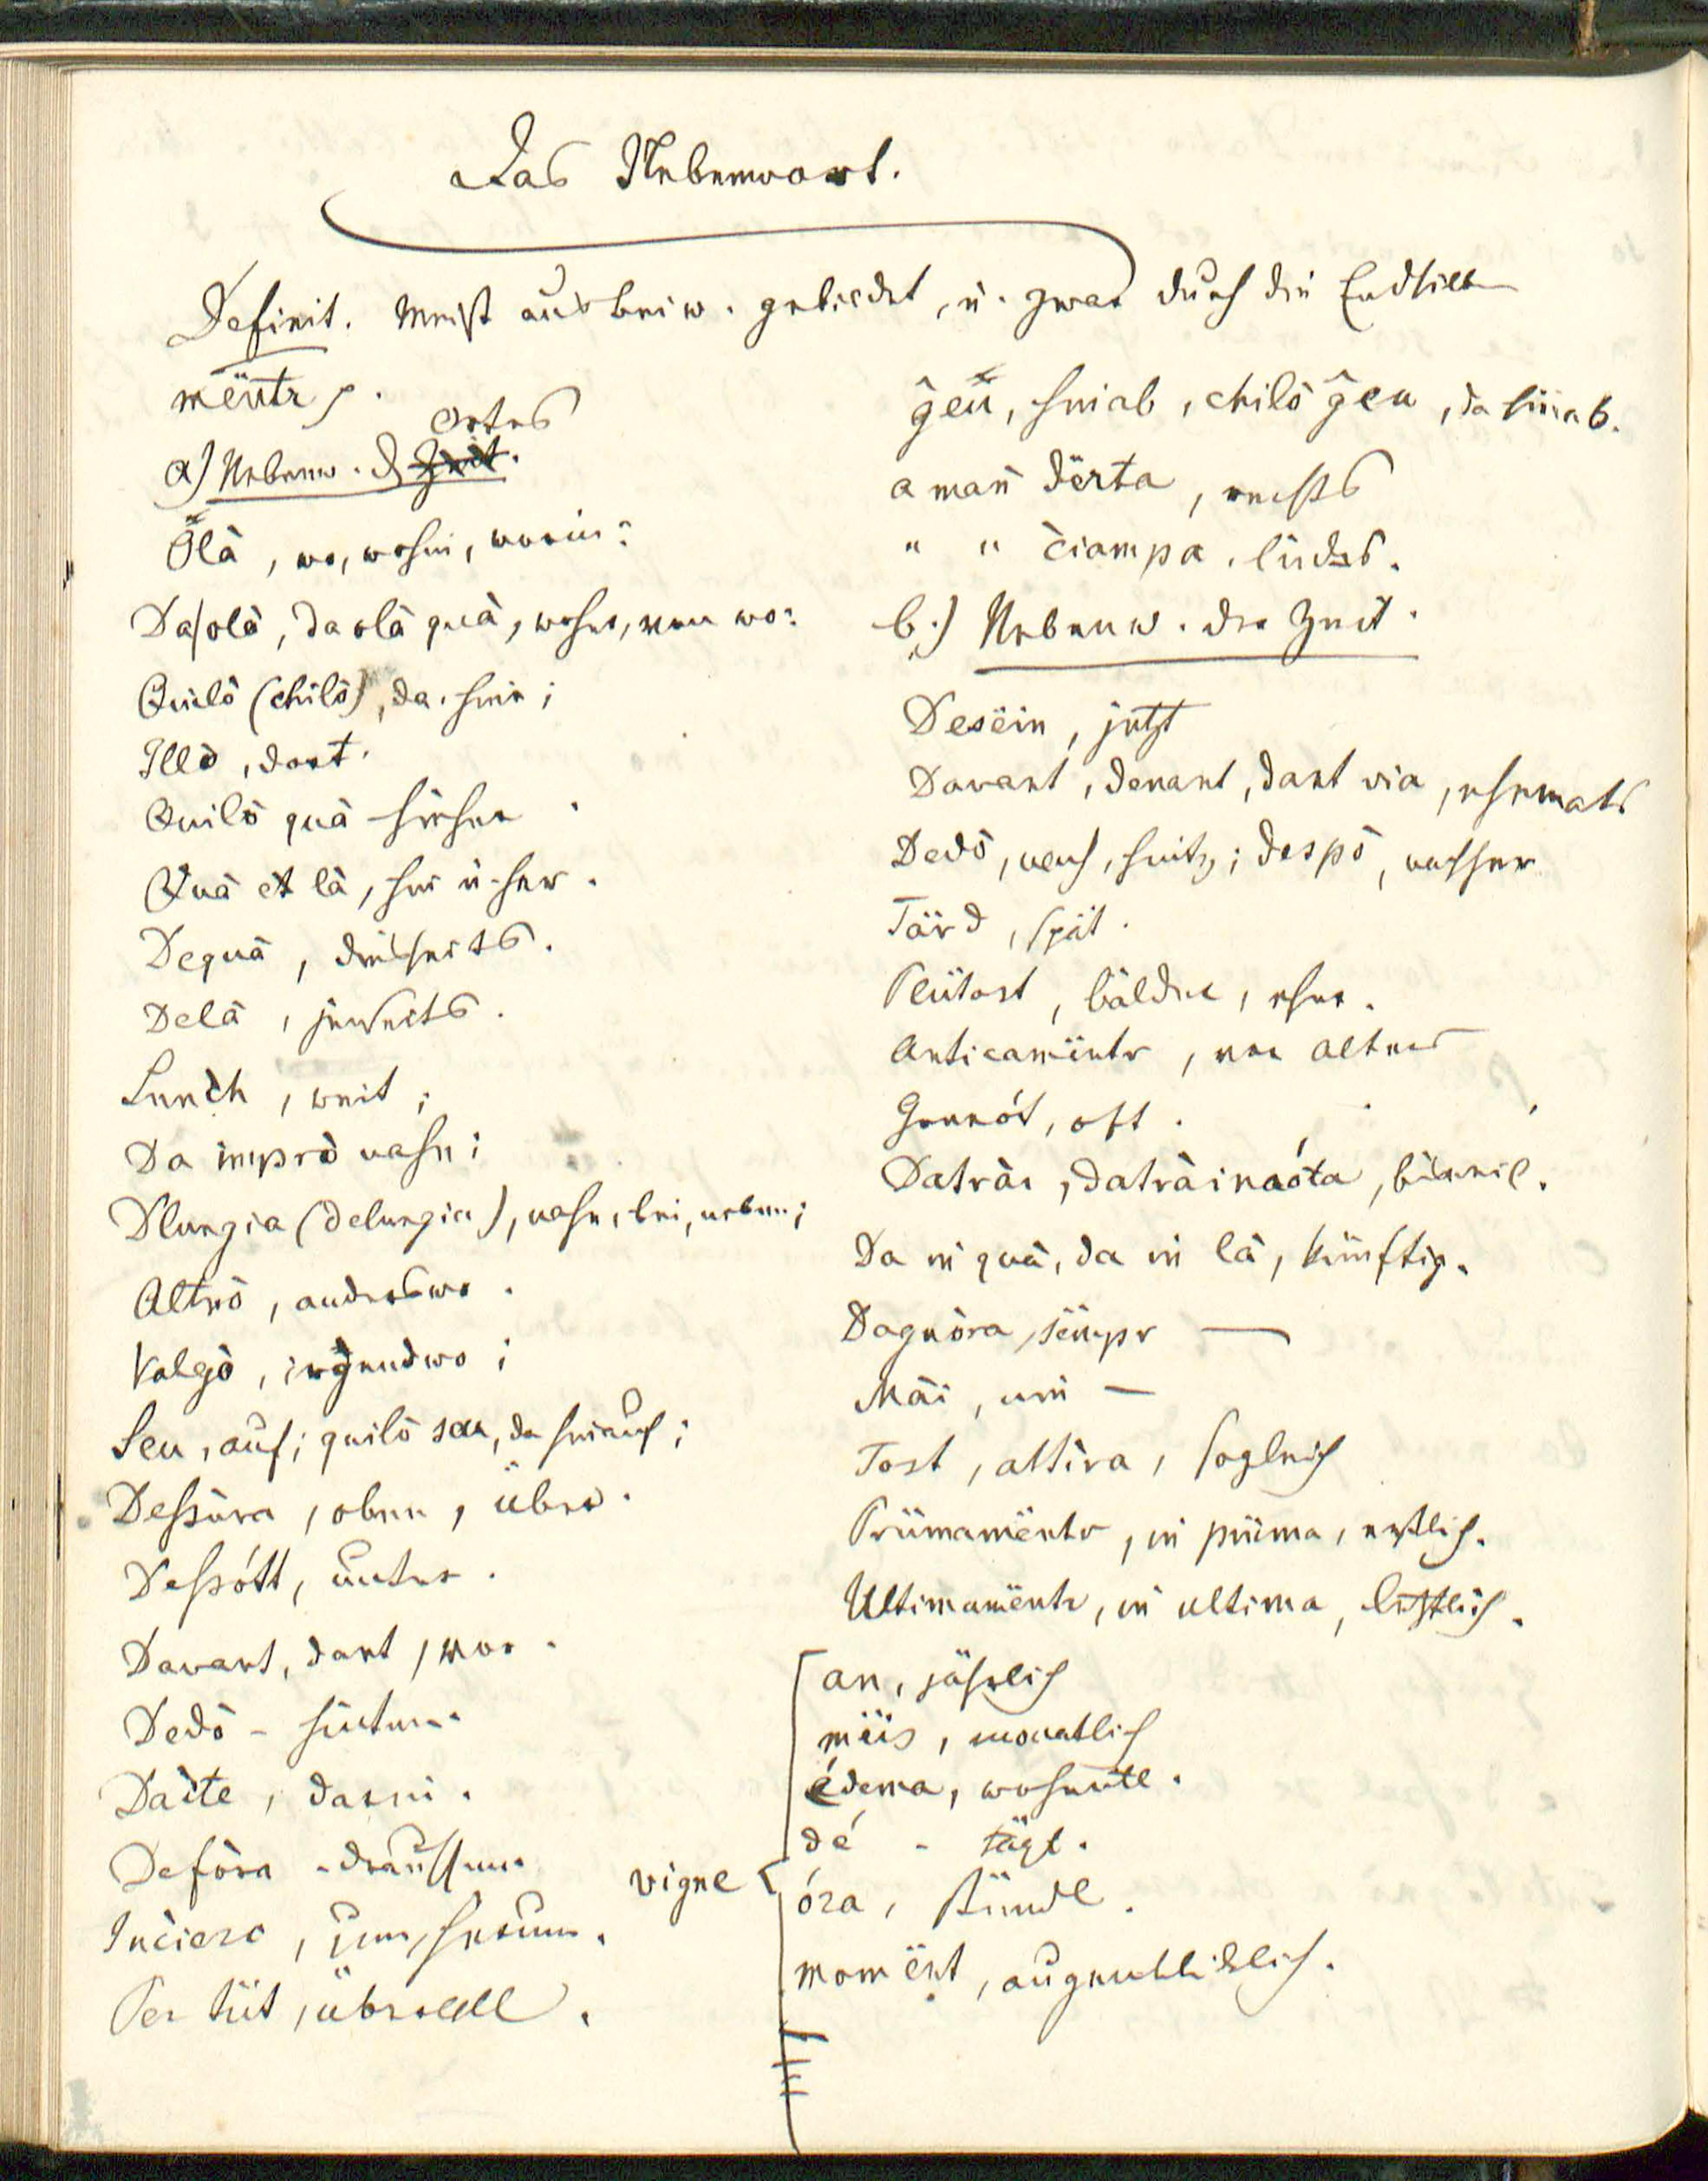 Das Nebenwort.
Definit. Meist aus beiw. gebildet, u. zwar durch die Endsilbe
mëntr.
a) Nebenw. d. Ortes
Olà, wo, wohin, worin?
Da olà, da olà quà, woher, von wo?
Quilò (chilò), da, hier;
Illò, dort.
Quilò quà hieher.
Quà et là, hin u. her.
Dequà, diesseits.
Delà, jenseits.
Lunch, weit;
Da imprò nahe;
Dlungia (delungia), nahe, bei, neben;
Altrò, anderswo.
Valgò, irgendwo;
Seu, auf; quilò seu, da hinauf;
Dessura, oben, über.
Dessótt, unter.
Davant, dant, vor.
Dedò - hinten.
Daite, darin.
Defòra - draussen.
Incierc, um, herum.
Per tüt, überall.
ĝeu, hinab, chilò ĝeu, da hinab.
a man dërta, rechts
" " ciampa, links.
b.) Nebenw. der Zeit.
Desëin, jetzt
Davant, denant, dant via, ehemals
Dedò, nach, hintz; despò, nachher
Tärd, spät.
Plütost, bälder, eher.
Anticamëntr, vor alters
Gonnót, oft.
Daträi, daträinaóta, bisweil.
Da in quà, da in là, künftig.
Dagnòra, sëmpr —
Mäi, nie —
Tost, attira, sogleich
Prümamëntr, in prüma, erstlich.
Ultimamëntr, in ultima, letztlich.
vigne
an, jährlich
mëis, monatlich
édema, wochentl.
dé - tägl.
óra, stündl.
momënt, augenblicklich.